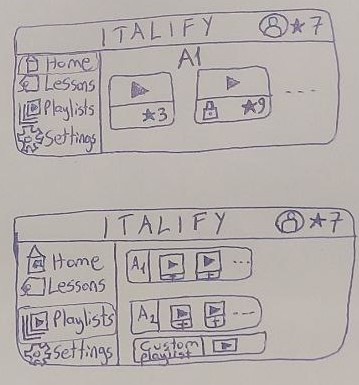 ITALIFY ★7
Home
Lessons
Playlists
Settings
A1
★3
★9
ITALIFY ★7
Home
Lessons
Playlists
Settings
A1
A2
Custom
playlist